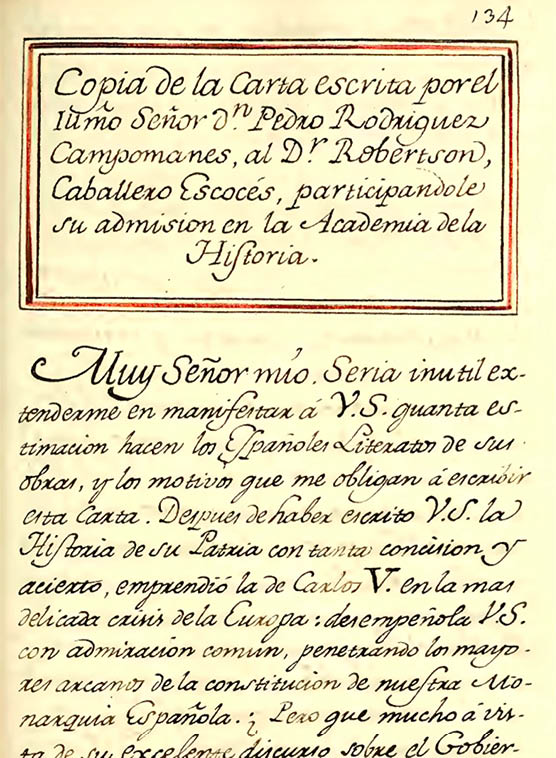 134
Copia de la Carta escrita por el
Illmo Señor dn Pedro Rodriguez
Campomanes, al Dr Robertson,
Caballero Escocés, participandole
su admision en la Academia de la
Historia.
Muy Señor mío. Seria inutil ex-
tenderme en manifestar á V.S. quanta es-
timacion hacen los Españoles Literatos de sus
obras, y los motivos que me obligan á escribir
esta Carta. Despues de haber escrito V.S. la
Historia de su Patria con tanta concision y
acierto, emprendió la de Carlos V. en la mas
delicada crisis de la Europa: desempeñola V.S.
con admiracion comun, penetrando los mayo-
res arcanos de la constitucion de nuestra Mo-
narquia Española. ¿Pero que mucho á vis-
ta de su excelente discurso sobre el Gobier-